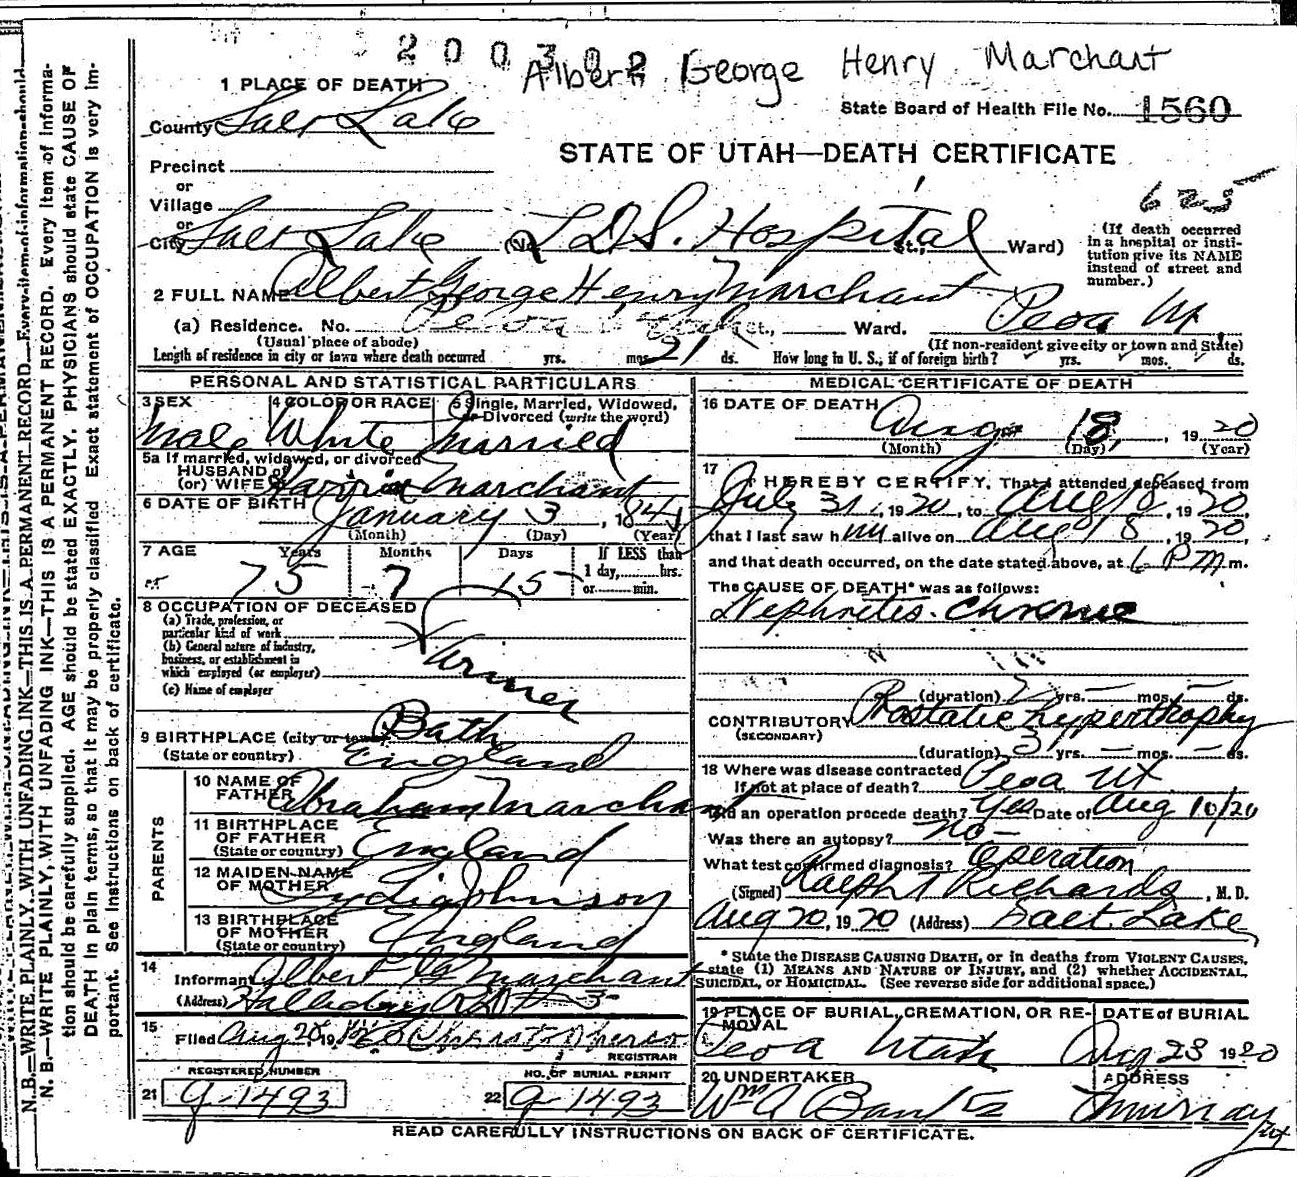 200302
Albert George Henry Marchant
1 PLACE OF DEATH
State Board of Health File No. 1560
County Salt Lake
STATE OF UTAH—DEATH CERTIFICATE
Precinct
or
Village
625
or
City Salt Lake (No. LDS. Hospital St., Ward)
(If death occurred in a hospital or insti-
tution give its NAME
instead of street and
number.)
2 FULL NAME Albert George Henry Marchant
(a) Residence. No. Peoa Utah St., Ward. Peoa Ut.
(Usual place of abode)
(If non-resident give city or town and State)
Length of residence in city or town where death occurred yrs. mos. 21 ds. How long in U. S., if of foreign birth? yrs. mos. ds.
PERSONAL AND STATISTICAL PARTICULARS
3 SEX 4 COLOR OR RACE 5 Single, Married, Widowed,
or Divorced (write the word)
Male White Married
5a If married, widowed, or divorced
HUSBAND of
(or) WIFE of Marchant
6 DATE OF BIRTH January 3, 184
(Month) (Day) (Year)
7 AGE Years Months Days If LESS than
1 day, hrs.
or min.
75 7 15
8 OCCUPATION OF DECEASED
(a) Trade, profession, or
particular kind of work
(b) General nature of industry,
business, or establishment in
which employed (or employer)
Farmer
(c) Name of employer
9 BIRTHPLACE (city or town) Bath
(State or country) England
PARENTS
10 NAME OF
FATHER Abraham Marchant
11 BIRTHPLACE
OF FATHER
(State or country) England
12 MAIDEN NAME
OF MOTHER Lydia Johnson
13 BIRTHPLACE
OF MOTHER
(State or country) England
14 Informant Albert G Marchant
(Address) Halladay R D # 3
15 Filed Aug 20, 19
REGISTRAR
REGISTERED NUMBER NO. OF BURIAL PERMIT
21 g-1493 22 g-1493
MEDICAL CERTIFICATE OF DEATH
16 DATE OF DEATH Aug 18, 1920
(Month) (Day) (Year)
17 I HEREBY CERTIFY, That I attended deceased from
July 31, 1920, to Aug 18, 1920,
that I last saw him alive on Aug 18, 1920,
and that death occurred, on the date stated above, at 6 PM m.
The CAUSE OF DEATH* was as follows:
Nephritis. Chronic
(duration) 2 yrs. — mos. — ds.
CONTRIBUTORY Prostatic hypertrophy
(SECONDARY)
(duration) 3 yrs. — mos. — ds.
18 Where was disease contracted
If not at place of death? Peoa UT
Did an operation precede death? Yes Date of Aug 10/20
Was there an autopsy? no—
What test confirmed diagnosis? Operation
(Signed) Ralph T Richards, M. D.
Aug 20, 1920 (Address) Salt Lake
* State the DISEASE CAUSING DEATH, or in deaths from VIOLENT CAUSES,
state (1) MEANS AND NATURE OF INJURY, and (2) whether ACCIDENTAL,
SUICIDAL, or HOMICIDAL. (See reverse side for additional space.)
19 PLACE OF BURIAL, CREMATION, OR RE-
MOVAL DATE of BURIAL
Peoa Utah Aug 23 1920
20 UNDERTAKER ADDRESS
Wm A Banks Murray Ut
READ CAREFULLY INSTRUCTIONS ON BACK OF CERTIFICATE.
N. B.—WRITE PLAINLY, WITH UNFADING INK—THIS IS A PERMANENT RECORD. Every item of information should
N. B.—WRITE PLAINLY, WITH UNFADING INK—THIS IS A PERMANENT RECORD. Every item of informa-
tion should be carefully supplied. AGE should be stated EXACTLY. PHYSICIANS should state CAUSE OF
DEATH in plain terms, so that it may be properly classified. Exact statement of OCCUPATION is very im-
portant. See instructions on back of certificate.